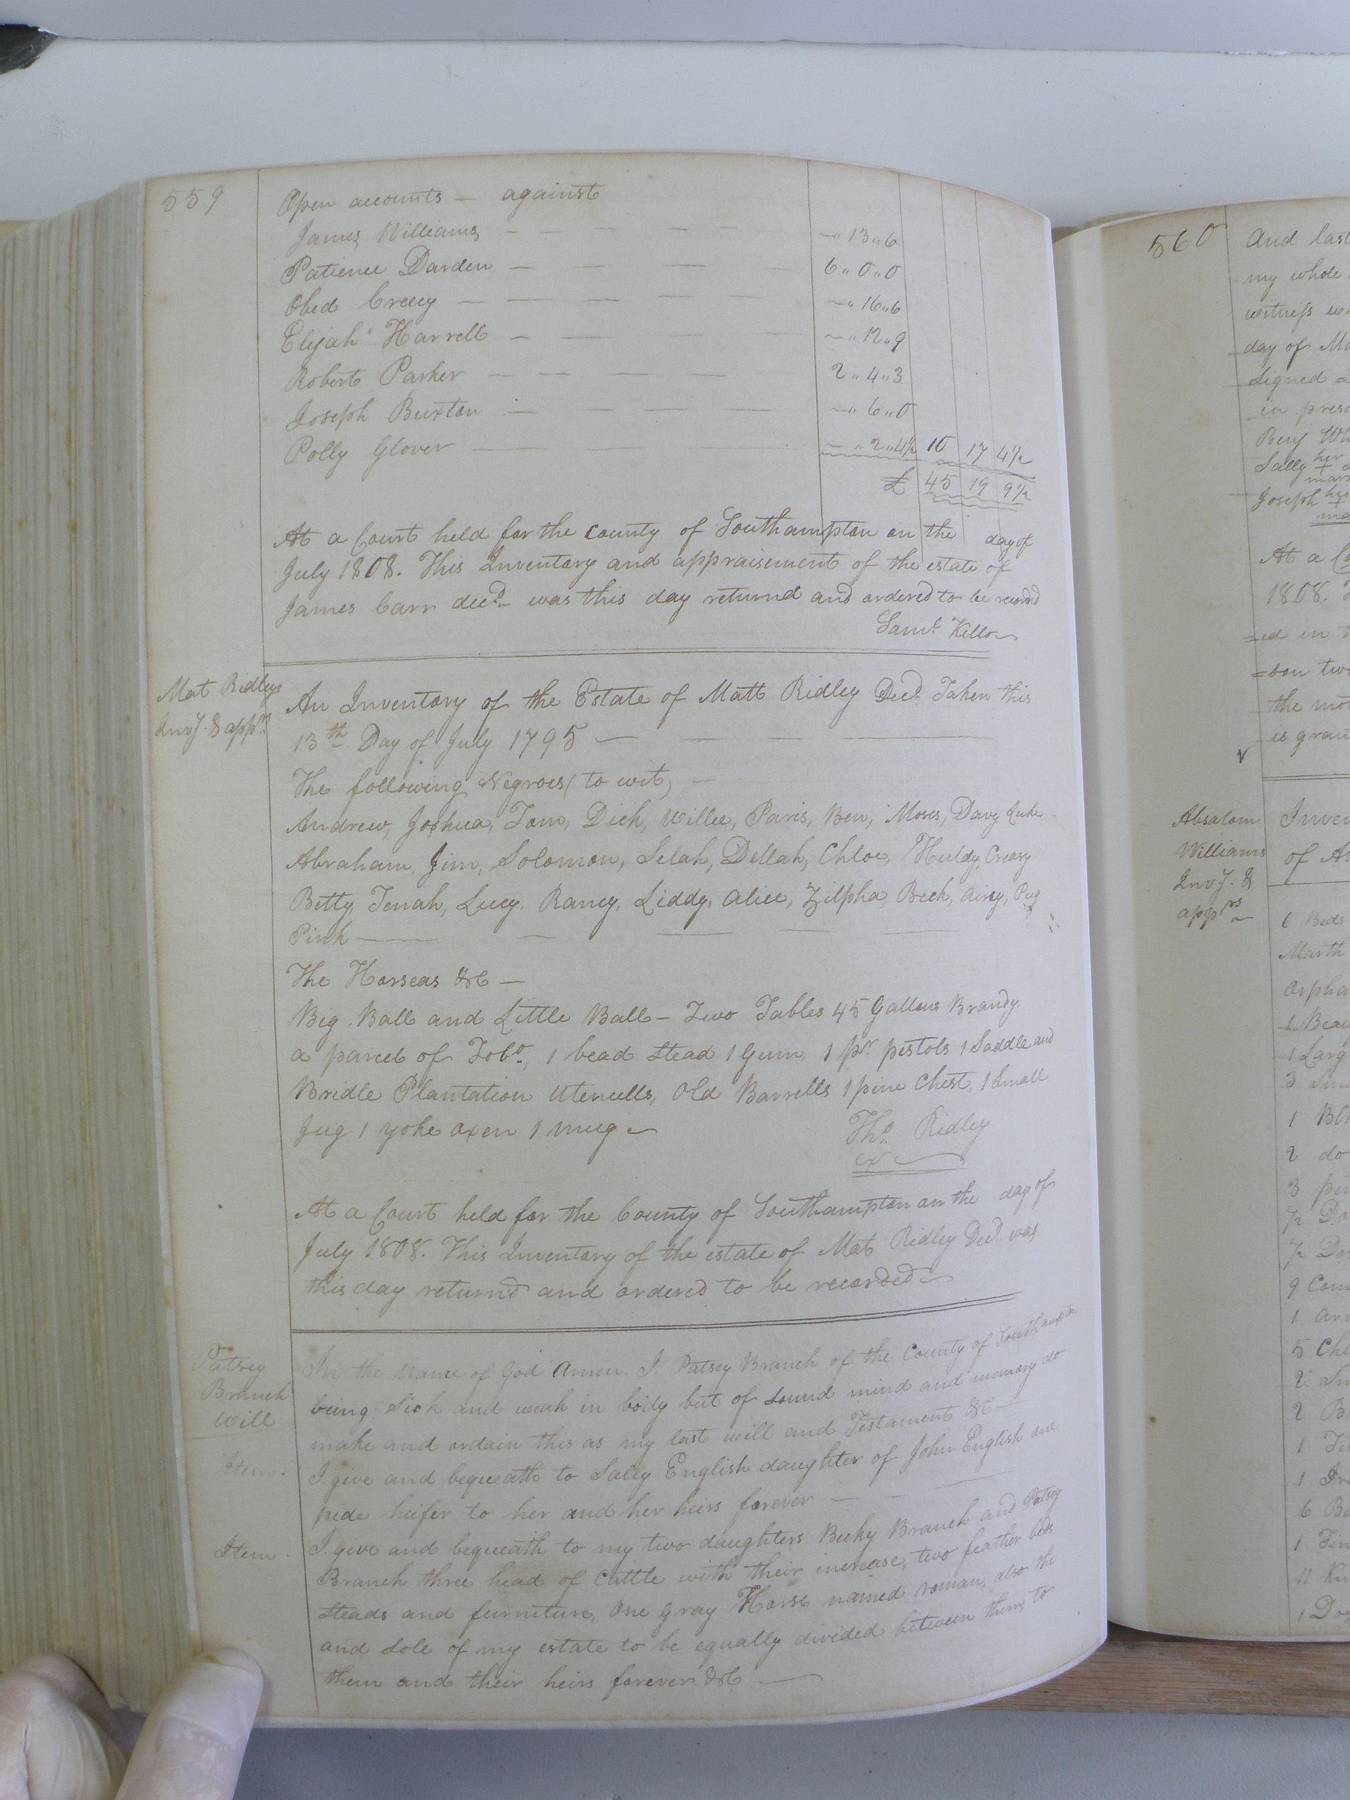 559
Open accounts — against
James Williams — — — — — —„ 13„6
Patience Darden — — — — — 6„ 0„0
Obed Creecy — — — — — —„ 16„6
Elijah Harrell — — — — —„ 12„9
Robert Parker — — — — — 2„ 4„3
Joseph Buxton — — — — —„ 6„0
Polly Glover — — — — —„ 2„4½ 10 17 4½
£ 45 19 9½
At a Court held for the county of Southampton on the day of
July 1808. This Inventory and appraisement of the estate of
James Carr decd. was this day returnd and ordered to be recorded
Saml. Kello
Mat Ridleys
Invy. & appt.
An Inventory of the Estate of Matt Ridley Decd. Taken this
13th Day of July 1795 — — — —
The following Negroes (to wit, —
Andrew, Joshua, Tom, Dick, Willie, Paris, Ben, Moses, Davy Luke
Abraham, Jim, Solomon, Selah, Dellah, Chloe, Huldy, Creasy
Betty, Tenah, Lucy. Rancy, Liddy, alice, Zilpha, Beck, airey, Peg
Pink — — — — —
The Horseas &c —
Beg Ball and Little Ball — Two Tables 45 Gallons Brandy.
a parcel of Tobo., 1 bead stead 1 Gun, 1 pr. pistols 1 Saddle and
Bridle Plantation Utencells, Old Barrells 1 pine Chest, 1 Small
Jug 1 yoke oxen 1 mug
Tho. Ridley
ex
At a Court held for the County of Southampton on the day of
July 1808. This Inventory of the estate of Mat Ridley Decd. was
this day returnd and ordered to be recorded
Patsey
Branch
Will
In the name of God Amen. I Patsey Branch of the County of Southampton
being Sick and weak in body but of sound mind and memory do
make and ordain this as my last will and Testament &c —
Item.
I give and bequeath to Sally English daughter of John English one
pide heifer to her and her heirs forever — — —
Item.
I give and bequeath to my two daughters Becky Branch and Patsey
Branch three head of Cattle with their increase, two feather beds
steads and furniture, One Gray Horse named roman, also the
and sole of my estate to be equally divided between them, to
them and their heirs forever &c —
560
And last
my whole
witness
day of
Signed
in
Benj
Sally her
mark
Joseph his
At a
1808.
=ed in
=son two
the
is
Absalom
Williams
Invy. &
apprs
of
6 Beds
Marth
Orpha
1
1 Larg
3
1
2 do
3
½
½
9
1
5
2
2
1
1
6
1
11
1